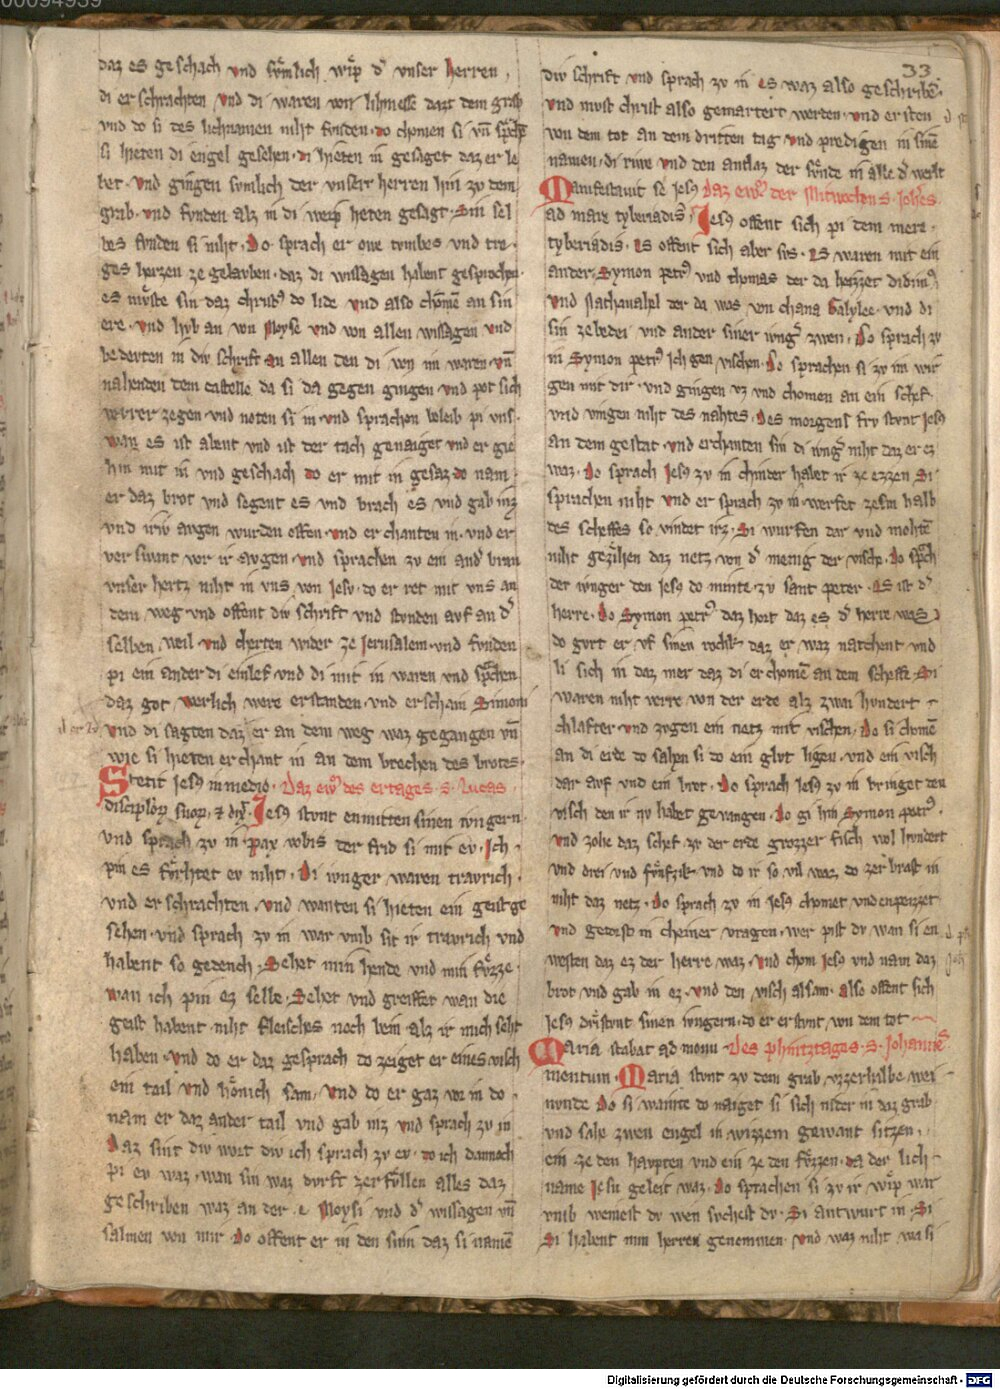 00094939
33
daz es geschach vnd svmlich wip d' vnser herren
di er schrachten vnd di waren von lihnesse dazt dem grab
vnd do si des lichnamen niht fvnden do chomen si vn̄ sprachē
si hieten di engel gesehen di hieten in gesaget daz er le
bet. vnd gingen svmlich der vnsar herren hin zv dem
grab. vnd fvnden alz in di weip heten gesagt. Sin sel
bes fvnden si niht. Do sprach er owe tvmbes vnd tre
ges herzen ze gelavben. daz di wissagen habent gesprochen.
es mvste sin daz christ9 do lide vnd also chomē an sin
ere. vnd hvb an von Moyse vnd von allen wissagen vnd
bedevten in div schrift an allen den di von im waren. vn̄
nahenden dem castelle da si da gegen gingen vnd pot sich
verrer zegen vnd noten si in vnd sprachen beleib pi vns.
wan es ist abent vnd ist der tach genaiget vnd er gie
hin mit in vnd geschach do er mit in gesaz do nam
er daz brot vnd segent es vnd brach es vnd gab inz
vnd iriv avgen wurden offen. vnd er chanten in. vnd er
verswant vor ir avgen. vnd sprachen zv ein and' brinn
vnser hertz niht in vns von Jesv. do er ret mit vns an
dem weg vnd offent div schrift vnd stvnden avf an d'
selben weil vnd cherten wider ze Jerusalem. vnd fvnden
pi ein ander di einlef vnd di mit in waren vnd sprachen
daz got werlich were erstanden. vnd erschain Simoni
vnd di sagten daz er an dem weg waz gegangen vn̄
wie si hieten erchant in an dem brechen des brotes.
Stetit Jesus in medio. Daz ew' des ertages. s. Lucas
discipulorum suorum. & dix'. Jesus stvnt enmitten sinen ivngern
vnd sprach zv in pax vobis der frid si mit ev. Ich
pin es fvrhtet ev niht. Di ivnger waren travrich.
vnd erschrachten. vnd wanten si hieten ein geistge
sehen. vnd sprach zv in war vmb sit ir travrich vnd
habent so gedench. Sehet min hende vnd min fvzze.
wan ich pin ez selbe. Sehet vnd greiffet wan die
geist habent niht fleisches noch bein alz ir mich seht
haben. vnd do er daz gesprach do zeiget er eines visch
ein tail vnd honich sam. vnd do er gaz vor in do
nam er daz ander tail vnd gab inz vnd sprach zv in
Daz sint div wort div ich sprach zv ev. do ich dannoch
pi ev waz. wan sin waz dvrft zerfvllen alles daz
geschriben waz an der e Moysi vnd d' wissagen vn̄
salmen von mir. Do offent er in den sinn daz si namē
div schrift vnd sprach zv in es waz also geschribē.
vnd mvst christ also gemartert werden. vnd ersten
von dem tot an dem dritten tag. vnd predigen in sinē
namen. di riwe vnd den antlaz der svnde in alle d' werlt
Manifestauit se Jesus daz ew' der Mitwochen s. Johes
ad mare tyberiadis. Jesus offent sich pi dem mere
tyberiadis. Es offent sich aber svs. Es waren mit ein
ander. Symon petr9 vnd thomas der da heizzet didim9
vnd Nathanahel der da was von chana Galylee. vnd di
sin zebedei vnd ander siner ivng' zwen. Do sprach zv
in Symon petr9 ich gen vischen. Do sprachen si zv im wir
gen mit dir. vnd gingen vz vnd chomen an ein schef.
vnd vingen niht des nahtes. Des morgens frv stvnt Jesus
an dem gestat. vnd erchanten sin di ivng' niht daz er ez
waz. Do sprach Jesus zv in chinder habet ir ze ezzen Si
sprachen niht vnd er sprach zv in werfet zesm halb
des scheffes so vindet irz. Si wurfen dar vnd mohtē
niht geziehen daz netz von d' menig der visch. do sprach
der ivnger den Jesus do minte. zv sant peter. Es ist d'
herre. do Symon petr9 daz hort daz es d' herre was
do gvrt er vf sinen rochk daz er waz nakchent vnd
li sich in daz mer daz di er chomē an dem scheffe. Si
waren niht verre von der erde alz zwai hvndert
chlafter. vnd zvgen ein netz mit vischen. Do si chomē
an di erde do sahen si do ein glvt ligen. vnd ein visch
dar avf vnd ein brot. Do sprach Jesus zv in bringet den
visch den ir nv habet gevangen. Do gi hin Symon petr9.
vnd zohe daz schef zv der erde grozzer fisch vol hvndert
vnd drei vnd fvnfzik vnd do ir so vil waz. do zerbrast in
niht daz netz. Do sprach zv in Jesus chomet vnd enpeizzet
vnd getorst in cheiner vragen. wer pist dv wan si en
westen daz ez der herre waz. vnd chom Jesus vnd nam daz
brot vnd gab in ez. vnd den visch alsam. also offent sich
Jesus dristvnt sinen ivngern. do er erstvnt von dem tot
Maria stabat ad monu Des phinztages. s. Johannē.
mentum. Maria stvnt zv dem grab vzzerhalbe wei
nvnde Do si wainte do naiget si sich nider in daz grab
vnd sahe zwen engel in wizzem gewant sitzen.
ein ze den havpten vnd ein ze den fvzzen. da der lich
name Jesu geleit waz. do sprachen si zv ir wip war
vmb weinest dv wen svchest dv. Si antwurt in. Si
Si habent min herren genommen. vnd waz niht wa si
Digitalisierung gefördert durch die Deutsche Forschungsgemeinschaft - DFG